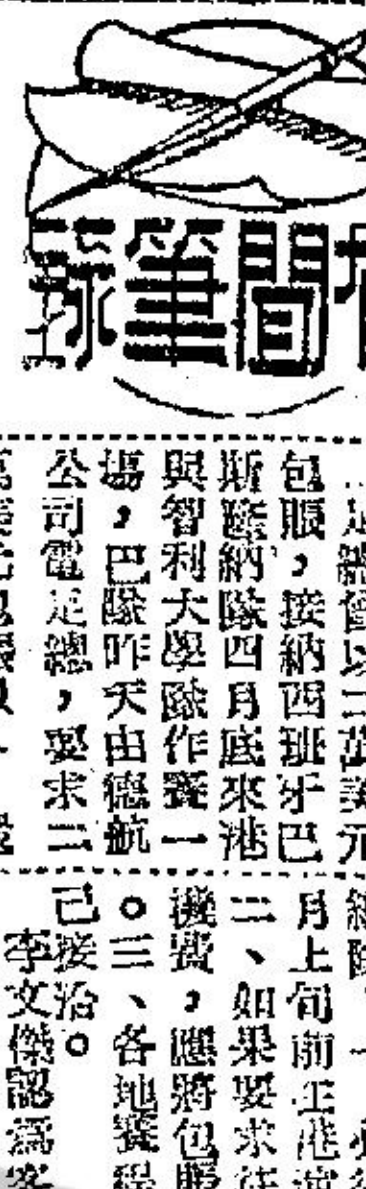 間筆球
足總曾以二萬美元
包賬，接納西班牙巴
斯隆納隊四月底來港
與智利大學隊作賽一
場，巴隊昨天由德航
公司電足總，要求二
月上旬前
二、如果要求
機費，應將包賬
。三、各地賽程
己接洽。
李文傑認爲客